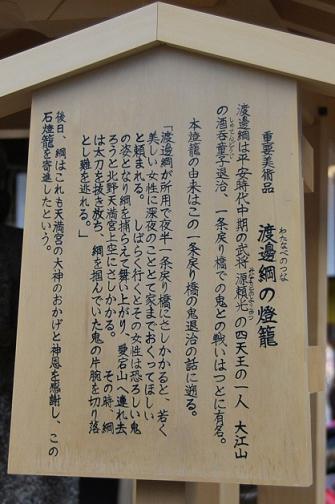 重要美術品
渡邊綱の燈籠
わたなべのつな
渡邊綱は平安時代中期の武将 源頼光の四天王の一人 大江山
みなもとのよりみつ
の酒呑童子退治、一条戻り橋での鬼との戦いはつとに有名。
しゅてんどうじ
本燈籠の由来はこの一条戻り橋の鬼退治の話に遡る。
「渡邊綱が所用で夜半一条戻り橋にさしかかると、若く
美しい女性に深夜のこととて家までおくってほしい
と頼まれる。しばらく行くとその女性は恐ろしい鬼
の姿となり綱を捕らえて舞い上がり、愛宕山へ連れ去
ろうと北野天満宮上空にさしかかる。その時、綱
は太刀を抜き放ち、綱を掴んでいた鬼の片腕を切り落
とし難を逃れる。」
後日、綱はこれも天満宮の大神のおかげと神恩を感謝し、この
石燈籠を寄進したという。